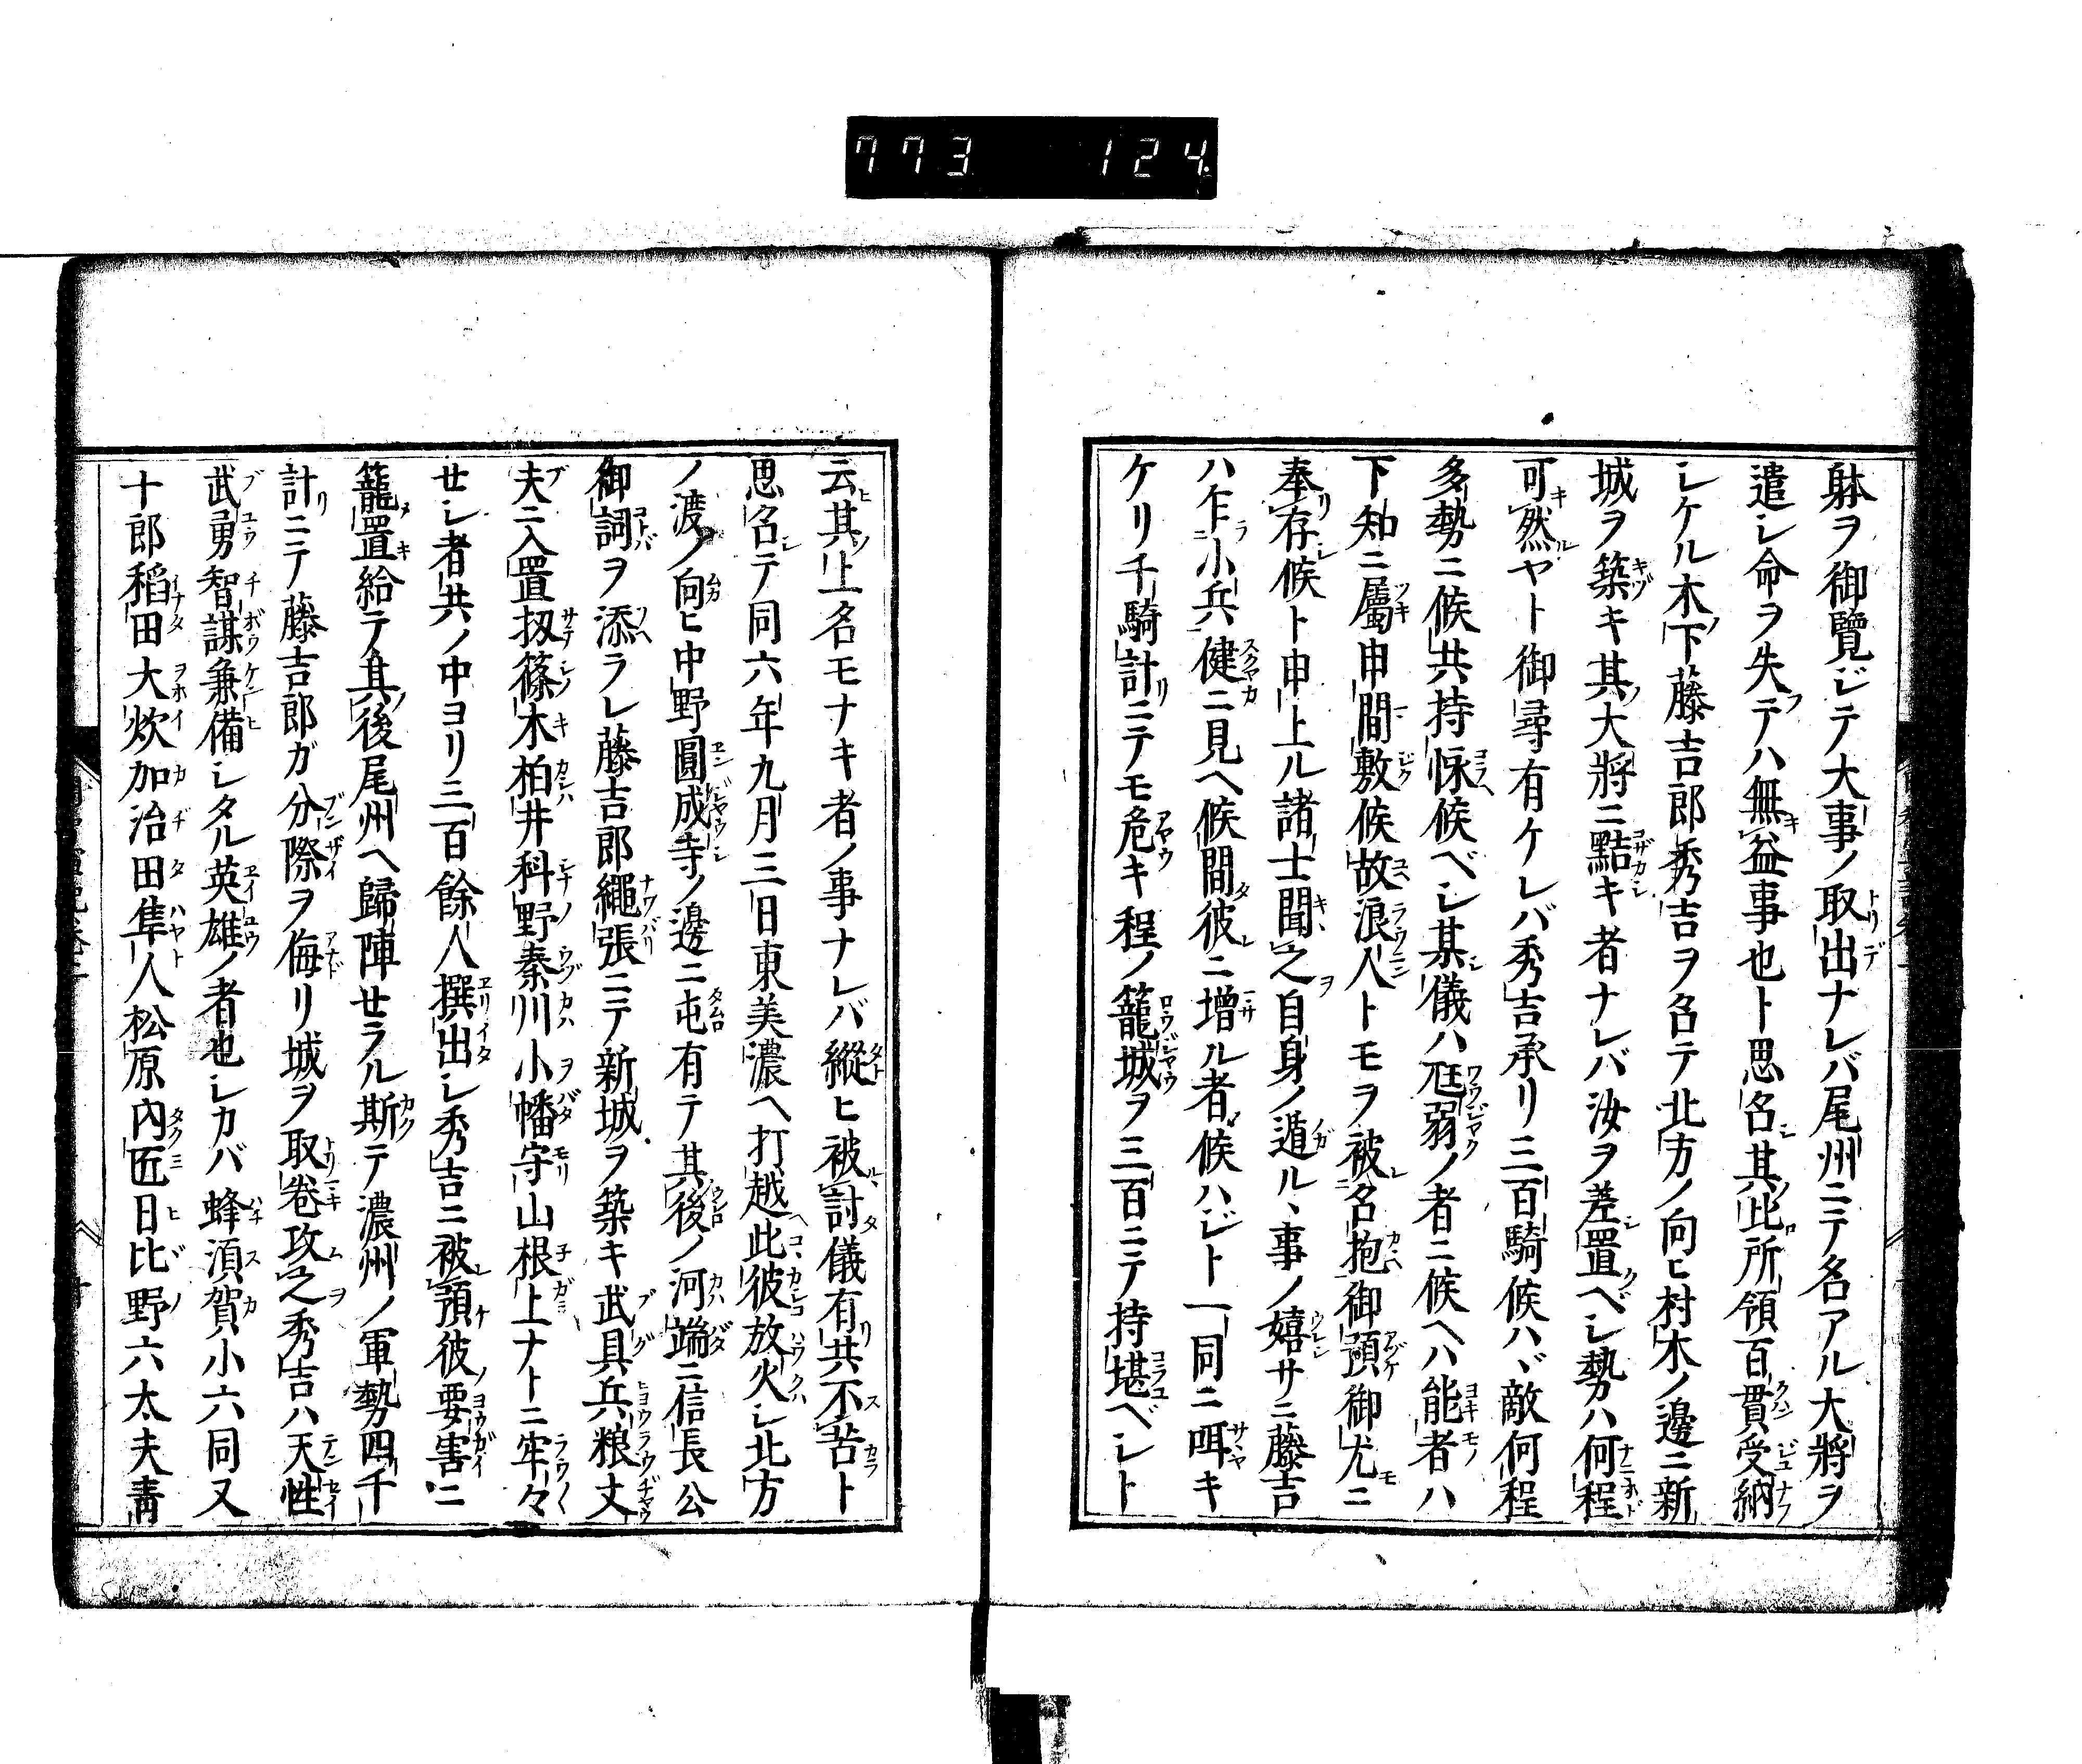 773 124
躰ヲ御覽ジテ大事ノ取出ナレバ尾州ニテ名アル大將ヲ
遣シ命ヲ失テハ無益事也ト思名其此所領百貫受納
シケル木下藤吉郎秀吉ヲ名テ北方ノ向ヒ村木ノ邊ニ新
城ヲ築キ其大將ニ黠キ者ナレバ汝ヲ差置ベシ勢ハ何程
可然ヤト御尋有ケレバ秀吉承リ三百騎候ハヾ敵何程
多勢ニ候共持怺候ベシ某儀ハ尫弱ノ者ニ候ヘハ能者ハ
下知ニ屬申間敷候故浪人トモヲ被名抱御預御尤ニ
奉存候ト申上ル諸士聞之自身ノ遁ルヽ事ノ嬉サニ藤吉
ハ乍小兵健ニ見ヘ候間彼ニ增ル者候ハジト一同ニ咡キ
ケリ千騎計ニテモ危キ程ノ籠城ヲ三百ニテ持堪ベシト
云其上名モナキ者ノ事ナレバ縱ヒ被討儀有共不苦ト
思名テ同六年九月三日東美濃ヘ打越此彼放火シ北方
ノ渡ノ向ヒ中野圓成寺ノ邊ニ屯有テ其後ノ河端ニ信長公
御詞ヲ添ラレ藤吉郎繩張ニテ新城ヲ築キ武具兵粮丈
夫ニ入置扨篠木柏井科野秦川小幡守山根上ナトニ牢々
セシ者共ノ中ヨリ三百餘人撰出シ秀吉ニ被預彼要害ニ
籠置給テ其後尾州ヘ歸陣セラル斯テ濃州ノ軍勢四千
計ニテ藤吉郎ガ分際ヲ侮リ城ヲ取卷攻之秀吉ハ天性
武勇智謀兼備シタル英雄ノ者也シカバ蜂須賀小六同又
十郎稻田大炊加治田隼人松原內匠日比野六太夫靑